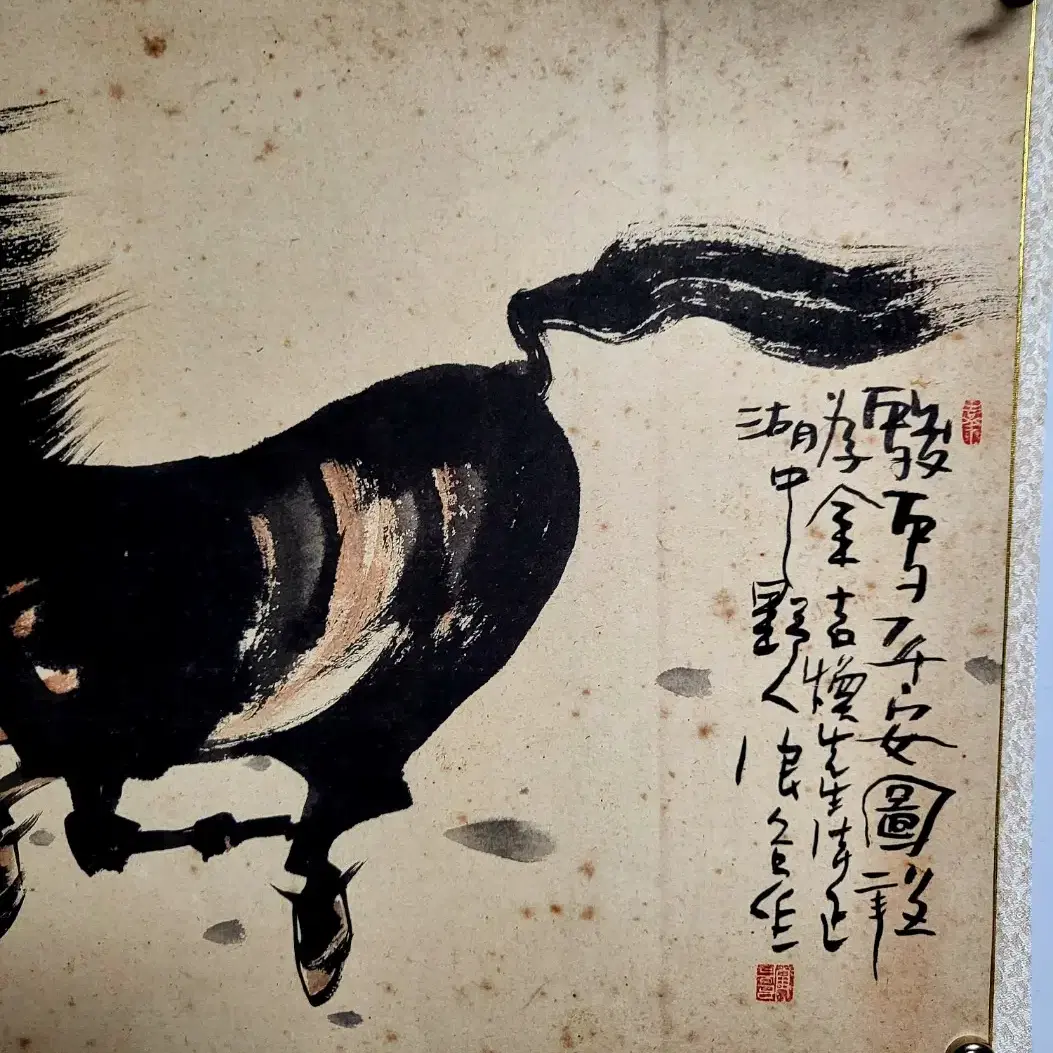 駿馬平安圖
為金吉煥先生清正
湖中野人浪谷作